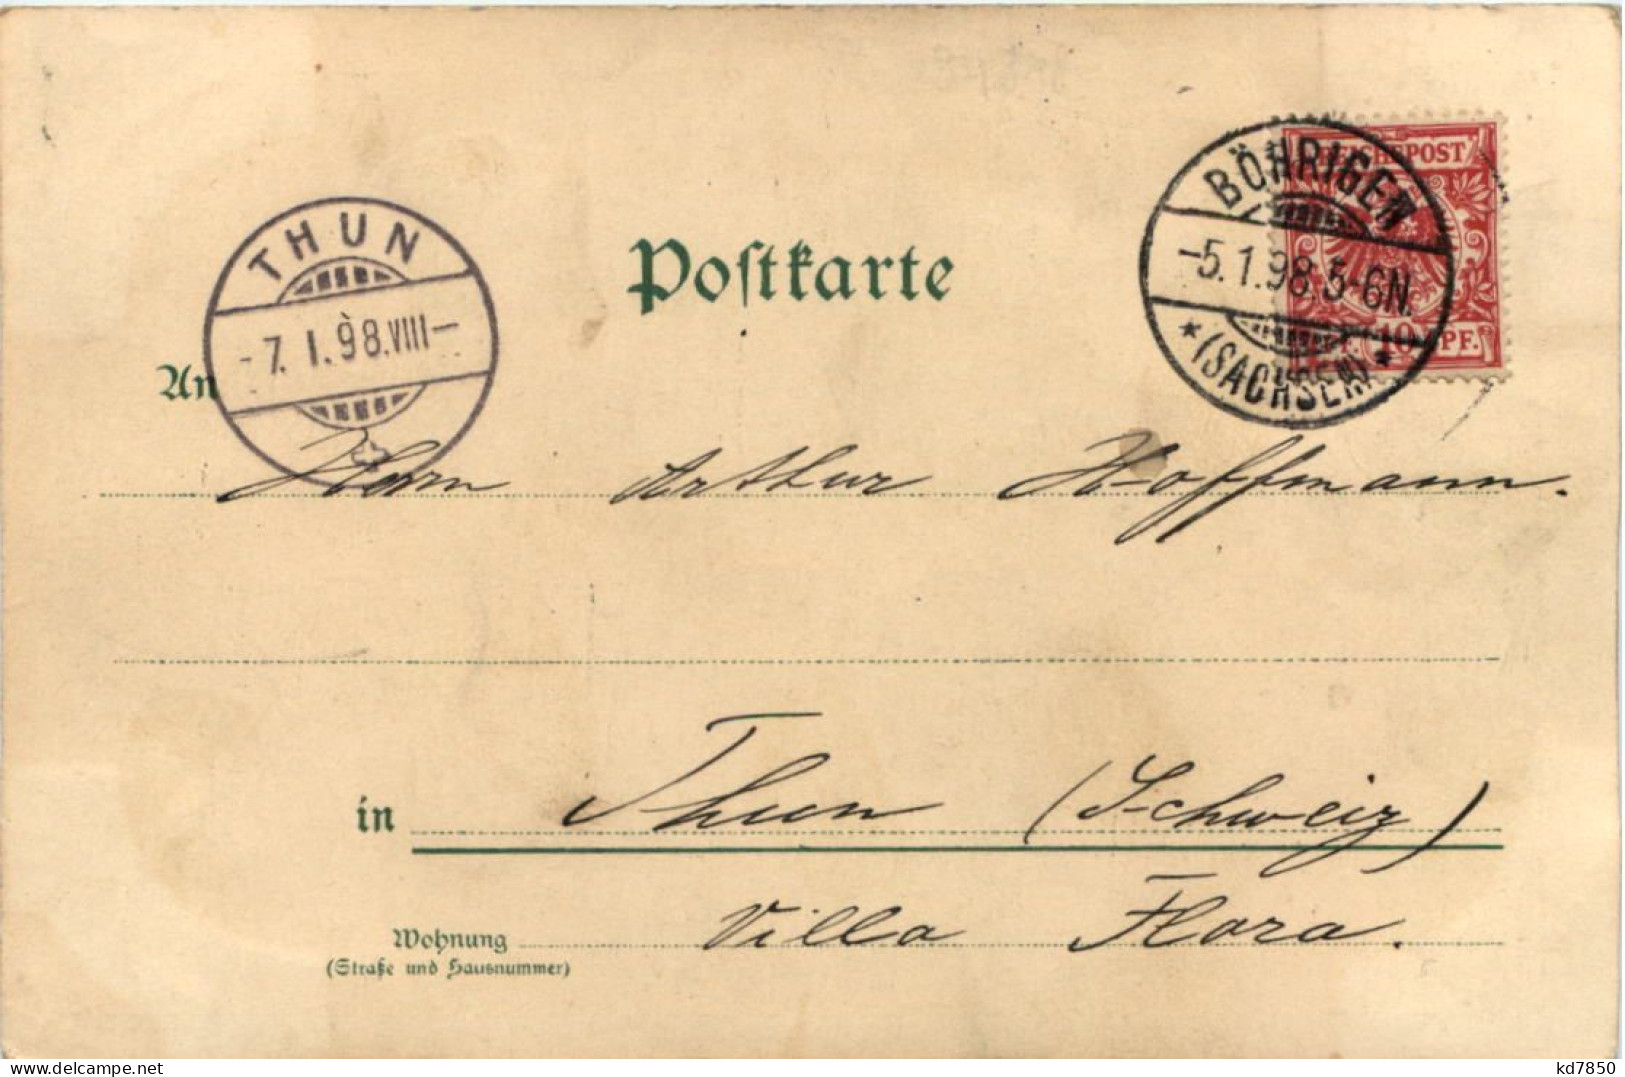 BÖHRIGEN
-5.1.98.5-6N.
*(SACHSEN)*
REICHSPOST
10 PF.
THUN
-7.I.98.VIII-
Postkarte
An
Herrn Arthur Hoffmann.
in Thun (Schweiz)
Wohnung Villa Flora.
(Straße und Hausnummer)
delcampe.net
kd7850